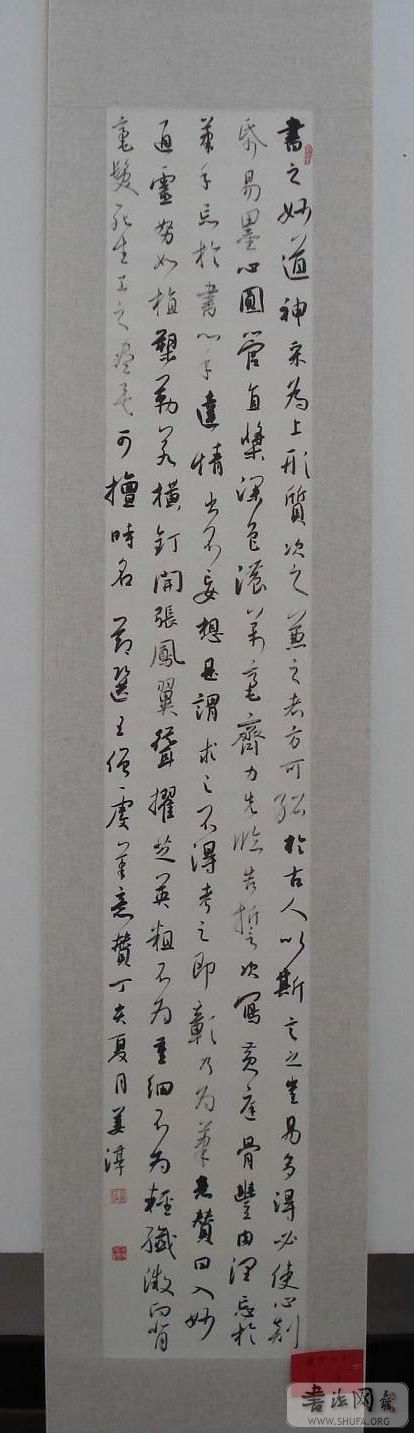 書之妙道神采為上形質次之兼之者方可紹於古人以斯言之豈易多得必使心剡
帋易墨心圓管直漿深色濃萬毫齊力先臨告誓次寫黃庭骨豐肉潤忘於
筆手忘於書心手達情書不妄想是謂求之不得考之即彰乃為筆意贊曰入妙
通靈努如植槊勒若橫釘開張鳳翼聳擢芝英粗不為重細不為輕纖微向背
毫髮死生工之盡矣可擅時名 節選王僧虔筆意贊丁亥夏月姜
書法网
WWW.SHUFA.ORG